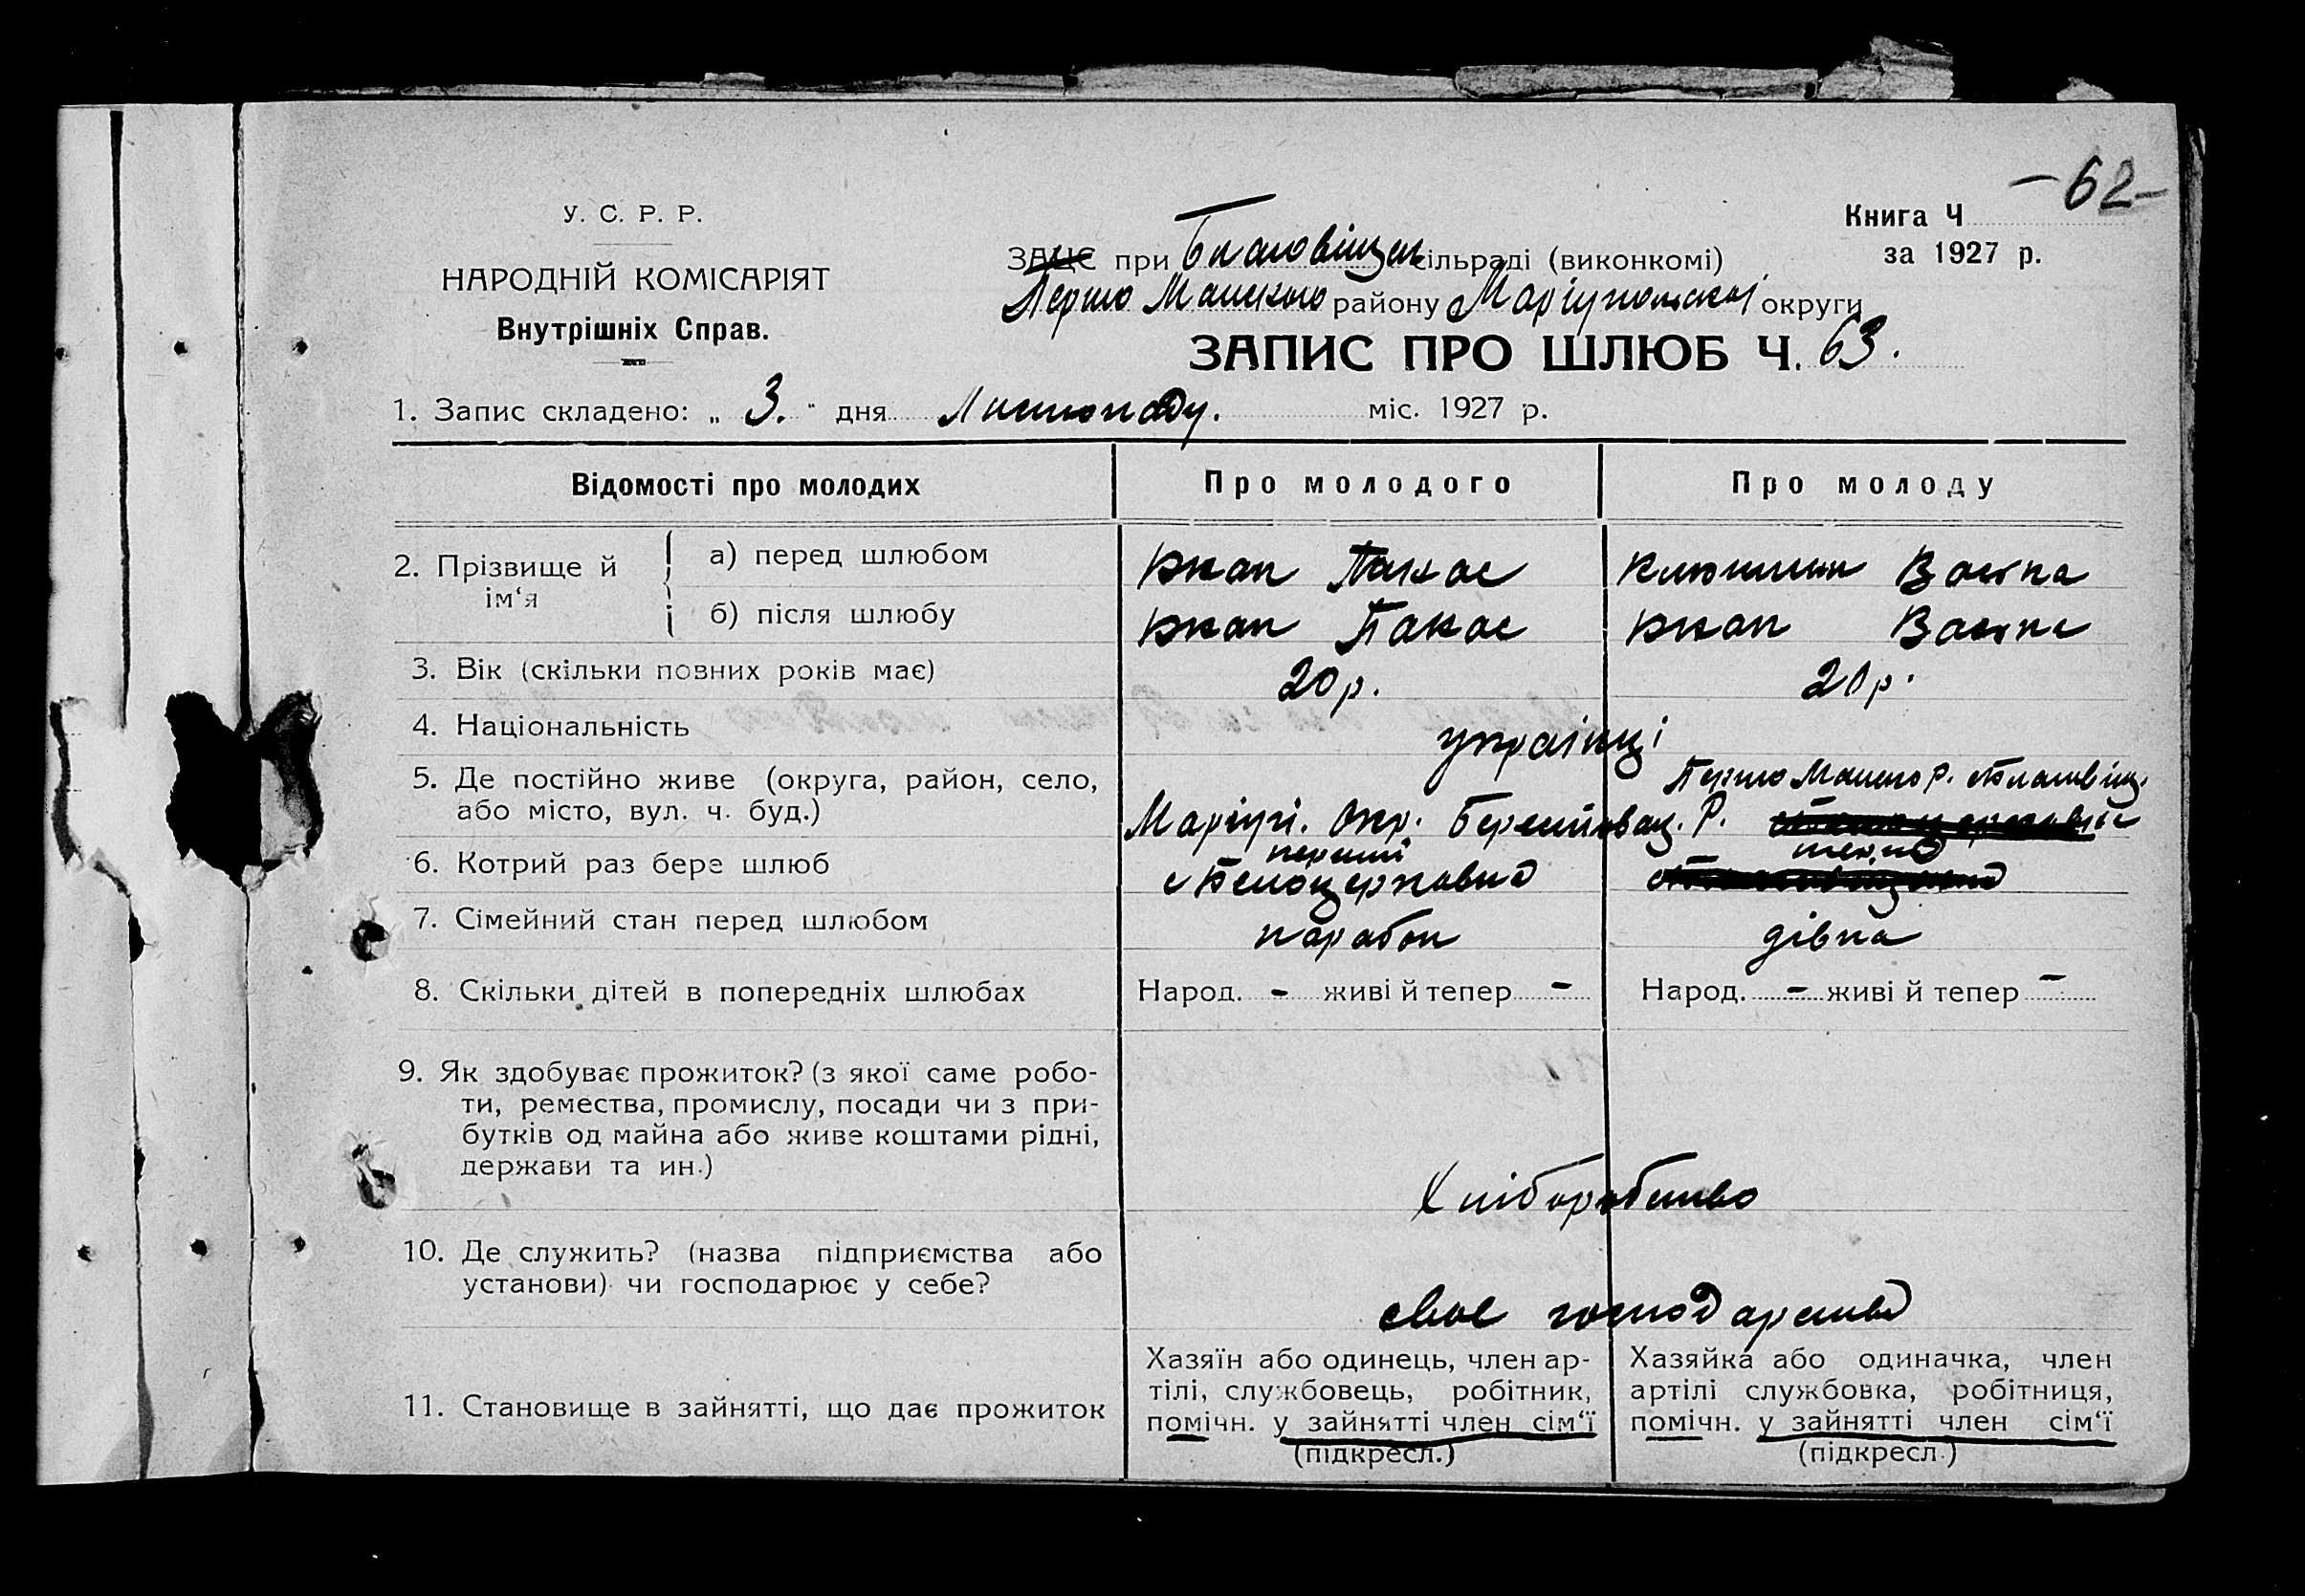 -62-
У. С. Р. Р.
НАРОДНІЙ КОМІСАРІЯТ
Внутрішніх Справ.
Книга Ч
за 1927 р.
ЗАЦС при Благовіщен сільраді (виконкомі)
Першо Манського району Маріупольської округи
ЗАПИС ПРО ШЛЮБ Ч. 63.
1. Запис складено: „ 3. " дня Листопаду. міс. 1927 р.
Відомості про молодих Про молодого Про молоду
2. Прізвище й ім‘я
а) перед шлюбом
б) після шлюбу
3. Вік (скільки повних років має) 20 р. 20 р.
4. Національність українці
5. Де постійно живе (округа, район, село, або місто, вул. ч. буд.)
Маріуп. Окр.
6. Котрий раз бере шлюб перший
с Білоцерковка
7. Сімейний стан перед шлюбом парубок дівка
8. Скільки дітей в попередніх шлюбах Народ. - живі й тепер - Народ. - живі й тепер -
9. Як здобуває прожиток? (з якої саме робо-
ти, ремества, промислу, посади чи з при-
бутків од майна або живе коштами рідні,
держави та ин.)
Хліборобство
10. Де служить? (назва підприємства або
установи) чи господарює у себе?
своє господарство
11. Становище в зайнятті, що дає прожиток
Хазяїн або одинець, член ар-
тілі, службовець, робітник,
помічн. у зайнятті член сім‘ї
(підкресл.)
Хазяйка або одиначка, член
артілі службовка, робітниця,
помічн. у зайнятті член сім‘ї
(підкресл.)